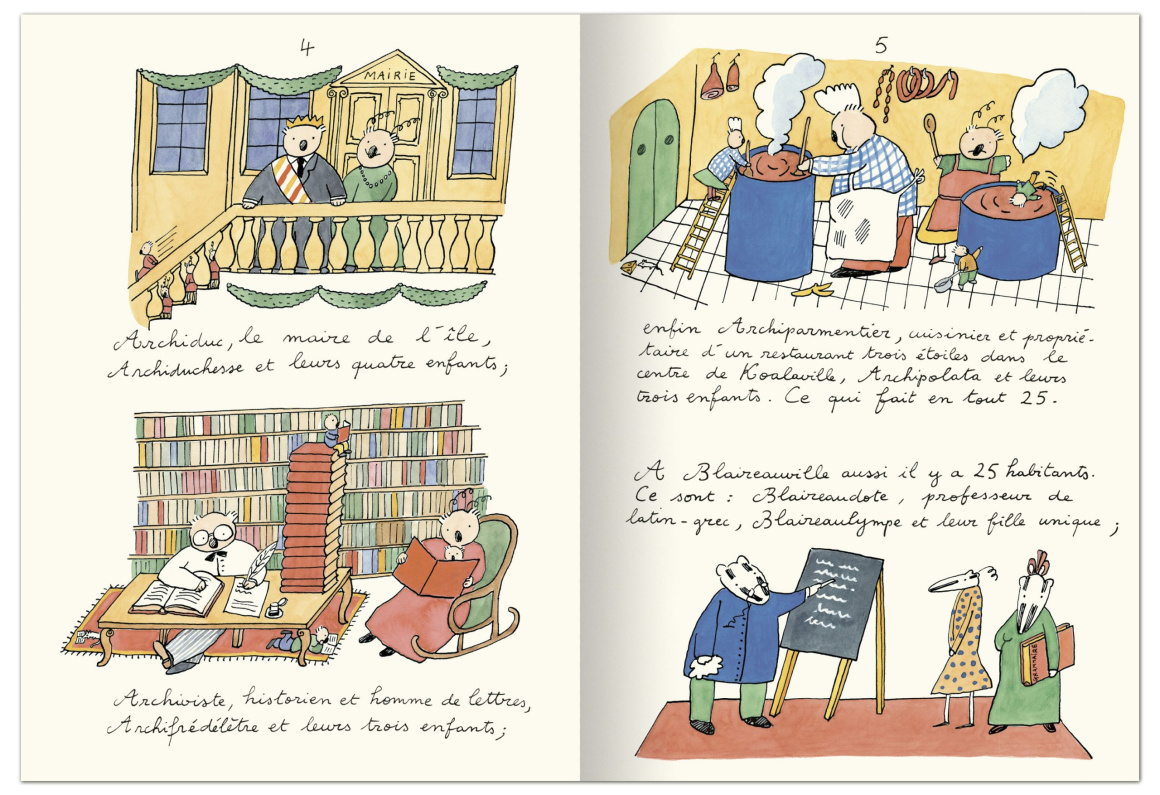 4
MAIRIE
Archiduc, le maire de l'île,
Archiduchesse et leurs quatre enfants;
Archiviste, historien et homme de lettres,
Archifrédélêtre et leurs trois enfants;
5
enfin Archiparmentier, cuisinier et proprié-
taire d'un restaurant trois étoiles dans le
centre de Koalaville, Archipolata et leurs
trois enfants. Ce qui fait en tout 25.
A Blaireauville aussi il y a 25 habitants.
Ce sont : Blaireaudote, professeur de
latin-grec, Blaireaulympe et leur fille unique ;
GRAMMAIRE